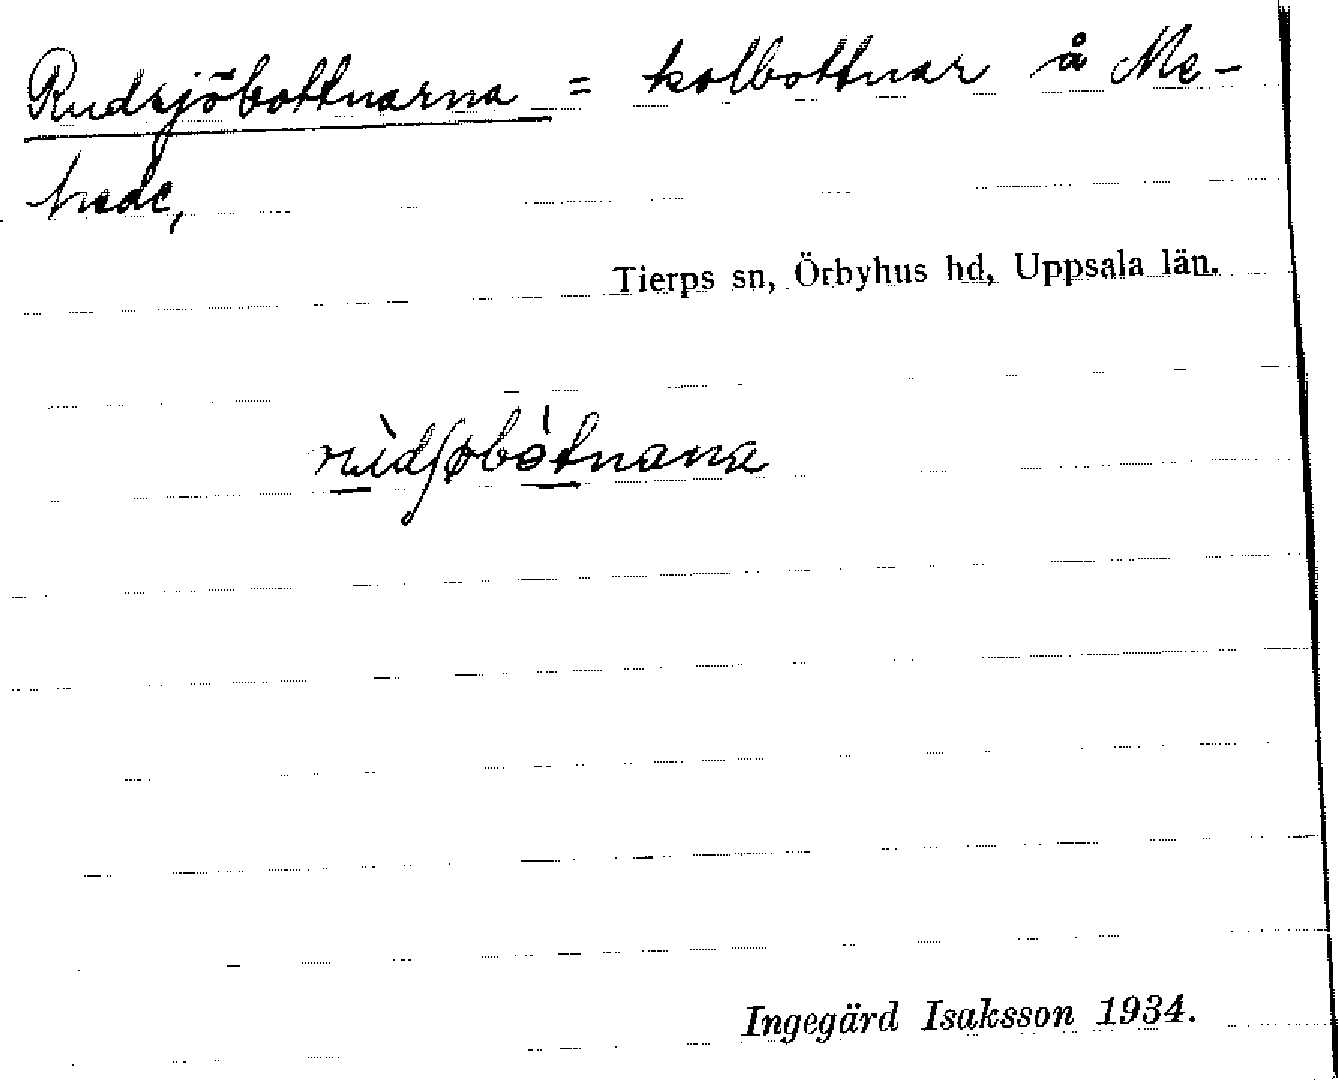 Rudsjöbottnarna = kolbottnar å Me-
hede,
Tierps sn, Örbyhus hd, Uppsala län.
rùdʃøbòtnana
Ingegärd Isaksson 1934.